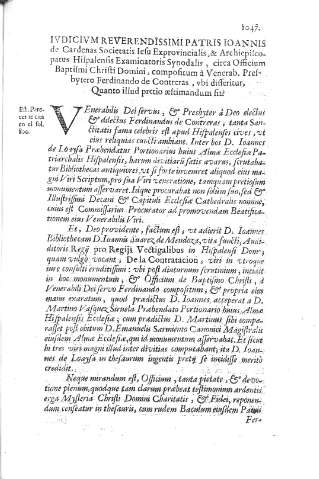 1047.
IVDICIVM REVERENDISSIMI PATRIS IOANNIS
de Cardenas Societatis Iesu Exprovincialis, & Archiepisco-
patus Hispalensis Examinatoris Synodalis, circa Officium
Baptismi Christi Domini, compositum à Venerab. Pres-
bytero Ferdinando de Contreras, vbi disseritur,
Quanto illud pretio æstimandum sit
VEnerabilis Dei servus, & Presbyter à Deo electus
& dilectus Ferdinandus de Contreras, tanta San-
ctitatis fama celebris est apud Hispalenses cives, vt
eius reliquias sancti ambiant. Inter hos D. Ioannes
de Loaysa Præbendatus Portionarius huius Almæ Ecclesiæ Pa-
triarchalis Hispalensis, harum divitiarũ satis avarus, scrutaba-
tur Bibliothecas antiquiores, vt si forte inveniret aliquod eius ma-
gni Viri Scriptum, pro sua Viri veneratione, tamquam pretiosum
monumentum asservaret. Idque procurabat non solum suo, sed &
Illustrissimi Decani & Capituli Ecclesiæ Cathedralis nomine,
cuius est Commissarius Procurator ad promovendam Beatifica-
tionem eius Venerabilis Viri.
Et, Deo providente, factum est, vt adierit D. Ioannes
Bibliothecam D. Ioannis Suarez de Mendoza, vita functi, Audi-
ditoris Regij pro Regijs Vectigalibus in Hispalensi Domo,
quam vulgò vocant, De la Contratacion, viri in vtroque
iure consulti eruditissimi: vbi post diuturnum scrutinium, incidit
in hoc monumentum, & Officium de Baptismo Christi, à
Venerabili Dei servo Ferdinando compositum, & propria eius
manu exaratum, quod prædictus D. Ioannes acceperat a D.
Martino Vasquez Siruela Præbendato Portionario huius Almæ
Hispalensis Ecclesiæ, cum prædictus D. Martinus sibi compa-
rasset post obitum D. Emanuelis Sarmiento Canonici Magistralis
eiusdem Almæ Ecclesiæ, qui id monumentum asservabat. Et sicut
hi tres viri magni illud inter divitias computabant, ita D. Ioan-
nes de Loaysa in thesaurum ingentis pretij se incidisse meritò
credidit.
Neque mirandum est, Officium, tanta pietate, & devo-
tione plenum, quodque tam clarum præbeat testimonium ardentis
erga Mysteria Christi Domini Charitatis, & Fidei, reponen-
dum censeatur in thesauris, tam rudem Baculum eiusdem Patris
Fer-